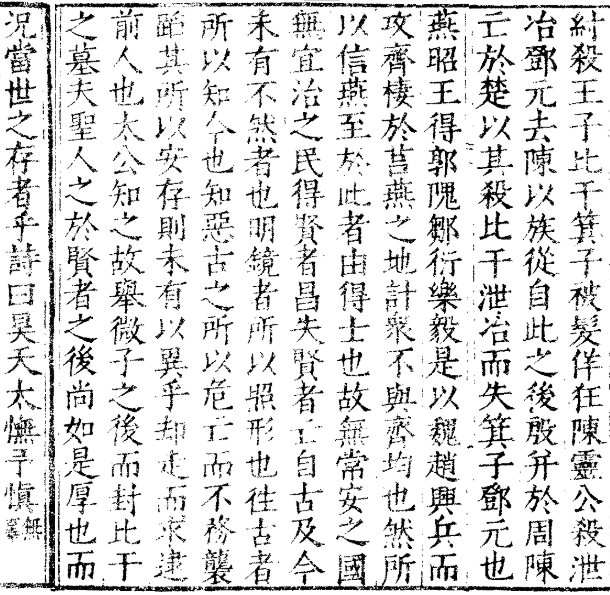 紂殺王子比干箕子被髮佯狂陳靈公殺泄
冶鄧元去陳以族從自此之後殷并於周陳
亡於楚以其殺比干泄冶而失箕子鄧元也
燕昭王得郭隗鄒衍樂毅是以魏趙興兵而
攻齊棲於莒燕之地計衆不與齊均也然所
以信燕至於此者由得士也故無常安之國
無宜治之民得賢者昌失賢者亡自古及今
未有不然者也明鏡者所以照形也徃古者
所以知今也知惡古之所以危亡而不務襲
蹈其所以安存則未有以異乎却走而求逮
前人也太公知之故舉微子之後而封比干
之墓夫聖人之於賢者之後尚如是厚也而
况當世之存者乎詩曰昊天太憮予愼無